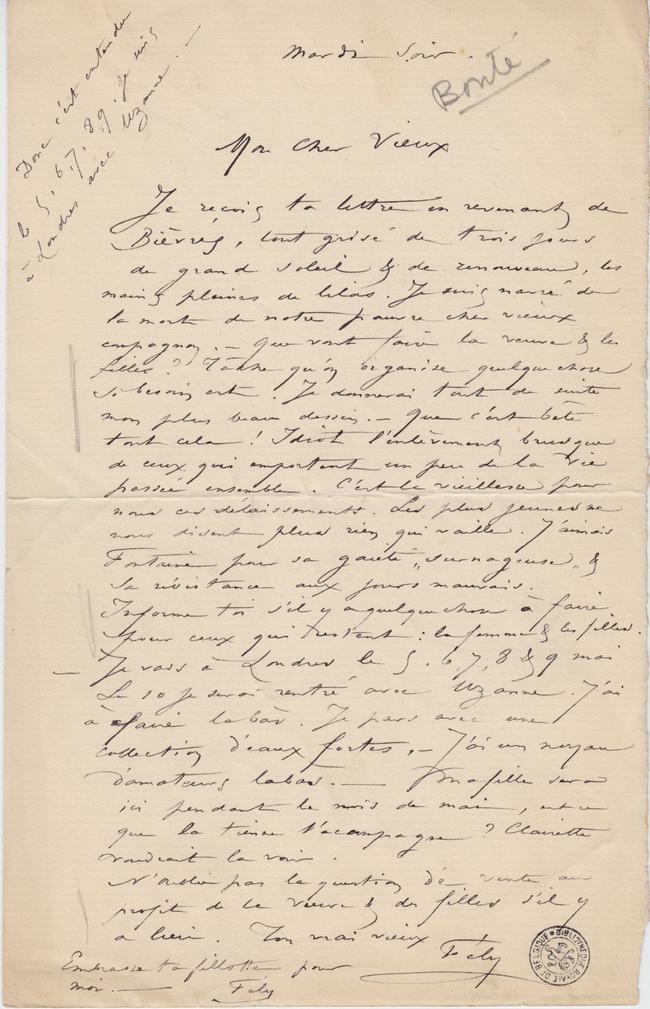 Mardi Soir.
Bonté
Donc c'est entendu
le 5, 6, 7, 8, 9, je suis
à Londres avec Uzanne. —
Mon Cher Vieux
Je reçois ta lettre en revenant de
Bièvres, tout grisé de trois jours
de grand soleil & de renouveau, les
mains pleines de lilas. Je suis navré de
la mort de notre pauvre cher vieux
compagnon. — Que vont faire la veuve & les
filles ? Tâche qu'on organise quelque chose
si besoin est. Je donnerai tout de suite
mon plus beau dessin. — Que c'est bête
tout cela ! Idiot l'enlèvement brusque
de ceux qui emportent un peu de la vie
passée ensemble. C'est la vieillesse pour
nous ces délaissements. Les plus jeunes ne
nous disent plus rien qui vaille. J'aimais
Fontaine pour sa gaieté „surnageuse„ &
sa résistance aux jours mauvais.
Informe toi s'il y a quelque chose à faire
pour ceux qui restent : la femme & les filles.
— Je vais à Londres le 5. 6, 7, 8 & 9 mai
Le 10 je serai rentré avec Uzanne. J'ai
à faire labàs. Je pars avec une
collection d'eaux fortes, — J'ai un noyau
d'amateurs labas. — Ma fille sera
ici pendant le mois de mai, est ce
que la tienne t'accompagne ? Clairette
voudrait la voir.
N'oublie pas la question de vente au
profit de la veuve & des filles s'il y
a lieu. Ton vrai vieux
Fély
Embrasse ta fillotte pour
moi. — Fély
BIBLIOTHEQUE ROYALE DE BELGIQUE